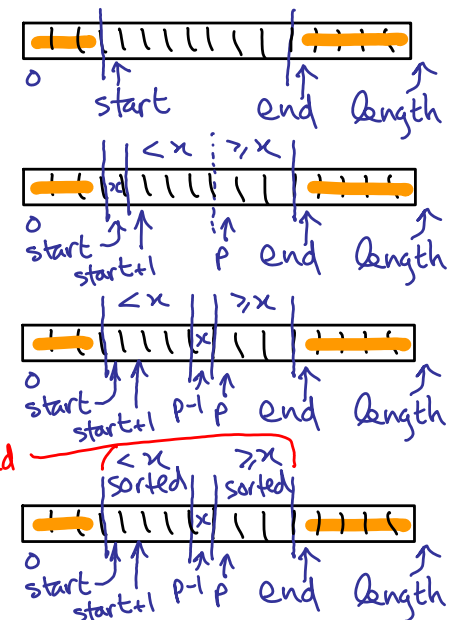 0 start end length
< x ≥ x
x
0 start start+1 p end length
< x ≥ x
x
0 start start+1 p-1 p end length
< x ≥ x
sorted sorted
x
0 start start+1 p-1 p end length